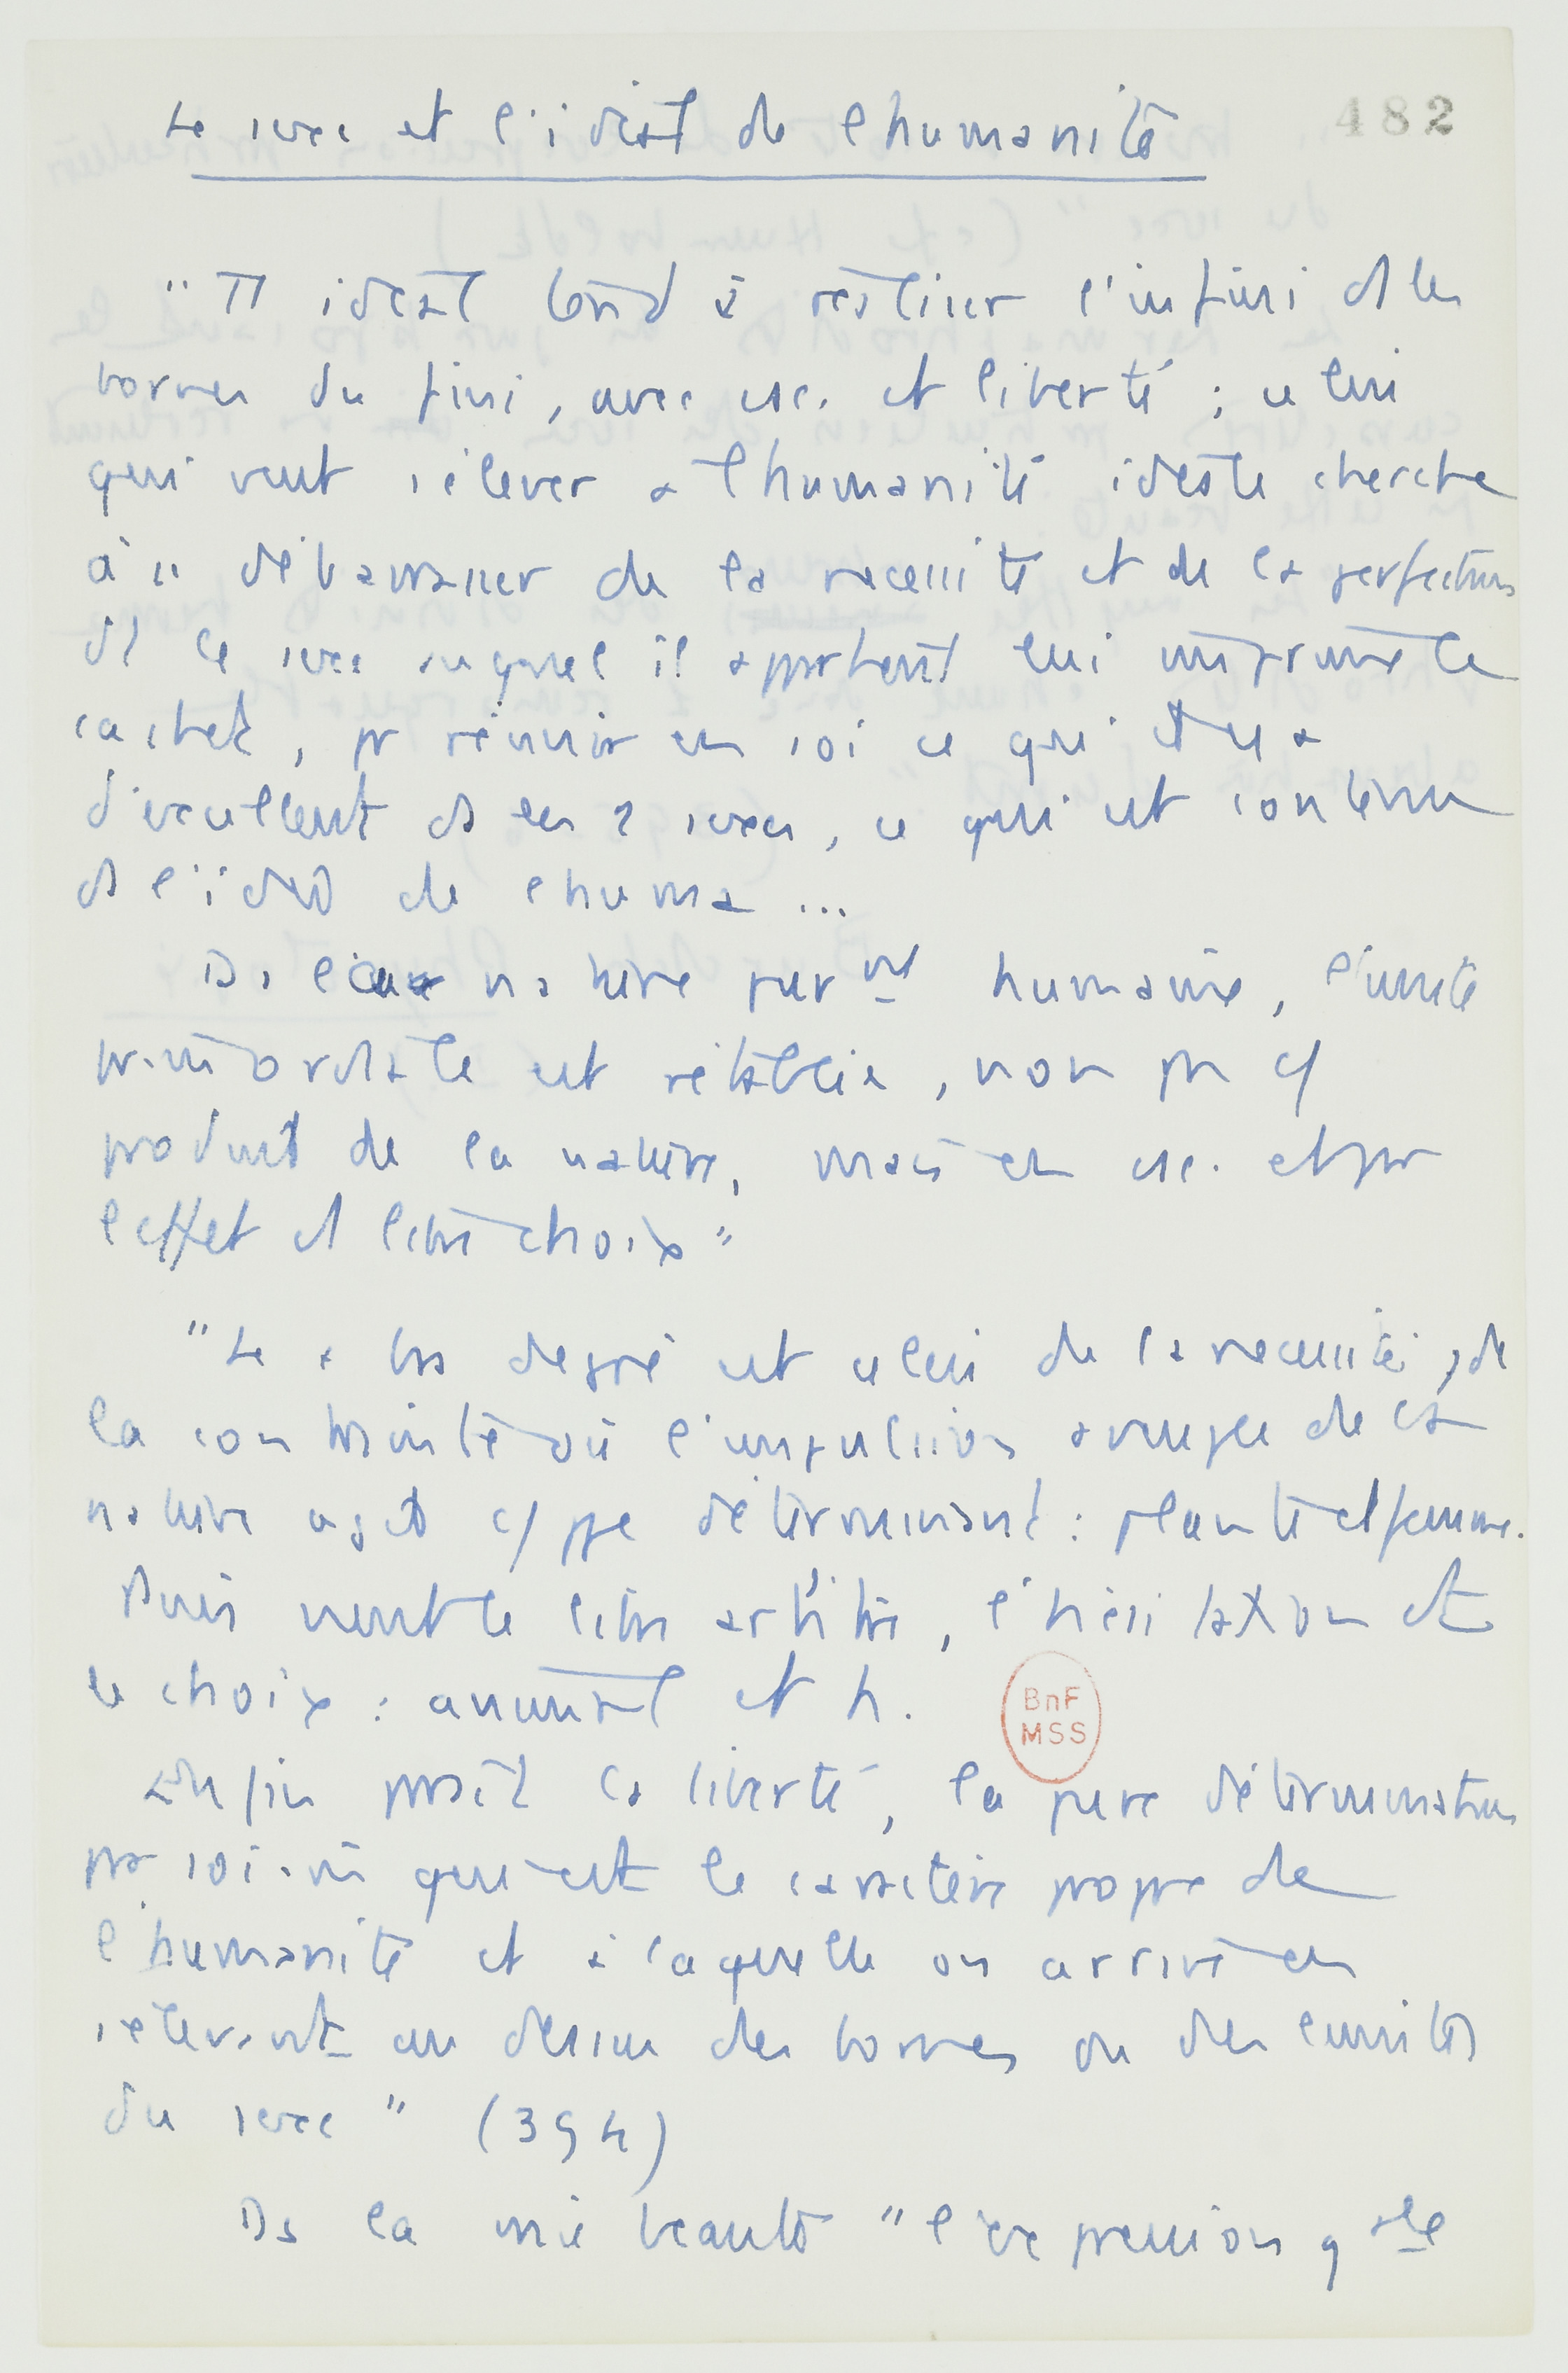 482
Le sexe et l'idéal de l'humanité
" Tt idéal tend à réaliser l'infini ds les
bornes du fini, avec csc. et liberté ; celui
qui veut s'élever à l'humanité idéale cherche
à se débarrasser de la nécessité et de la perfection
dt le sexe auquel il appartient lui imprime le
cachet, pr réunir en soi ce qui
d'excellent ds les 2 sexes, ce qui est contenu
ds l'idée de l'huma...
Ds nature purmt humaine, l'unité
primordiale est rétablie, non pr c/
produit de la nature, mais en csc. et par
l'effet d libre choix "
" Le + bas degré est celui de la nécessité, de
la contrainte où l'impulsion aveugle de la
nature agit c/ ppe déterminant : plante et femme.
Puis vient le libre arbitre, l'hésitation et
le choix : animal et h.
BnF
MSS
Enfin paraît la liberté, la pure détermination
par soi-m qui est le caractère propre de
l'humanité et à laquelle on arrive en
s'élevant au dessus des bornes ou des limites
du sexe " (394)
Ds la vraie beauté " l'expression gale